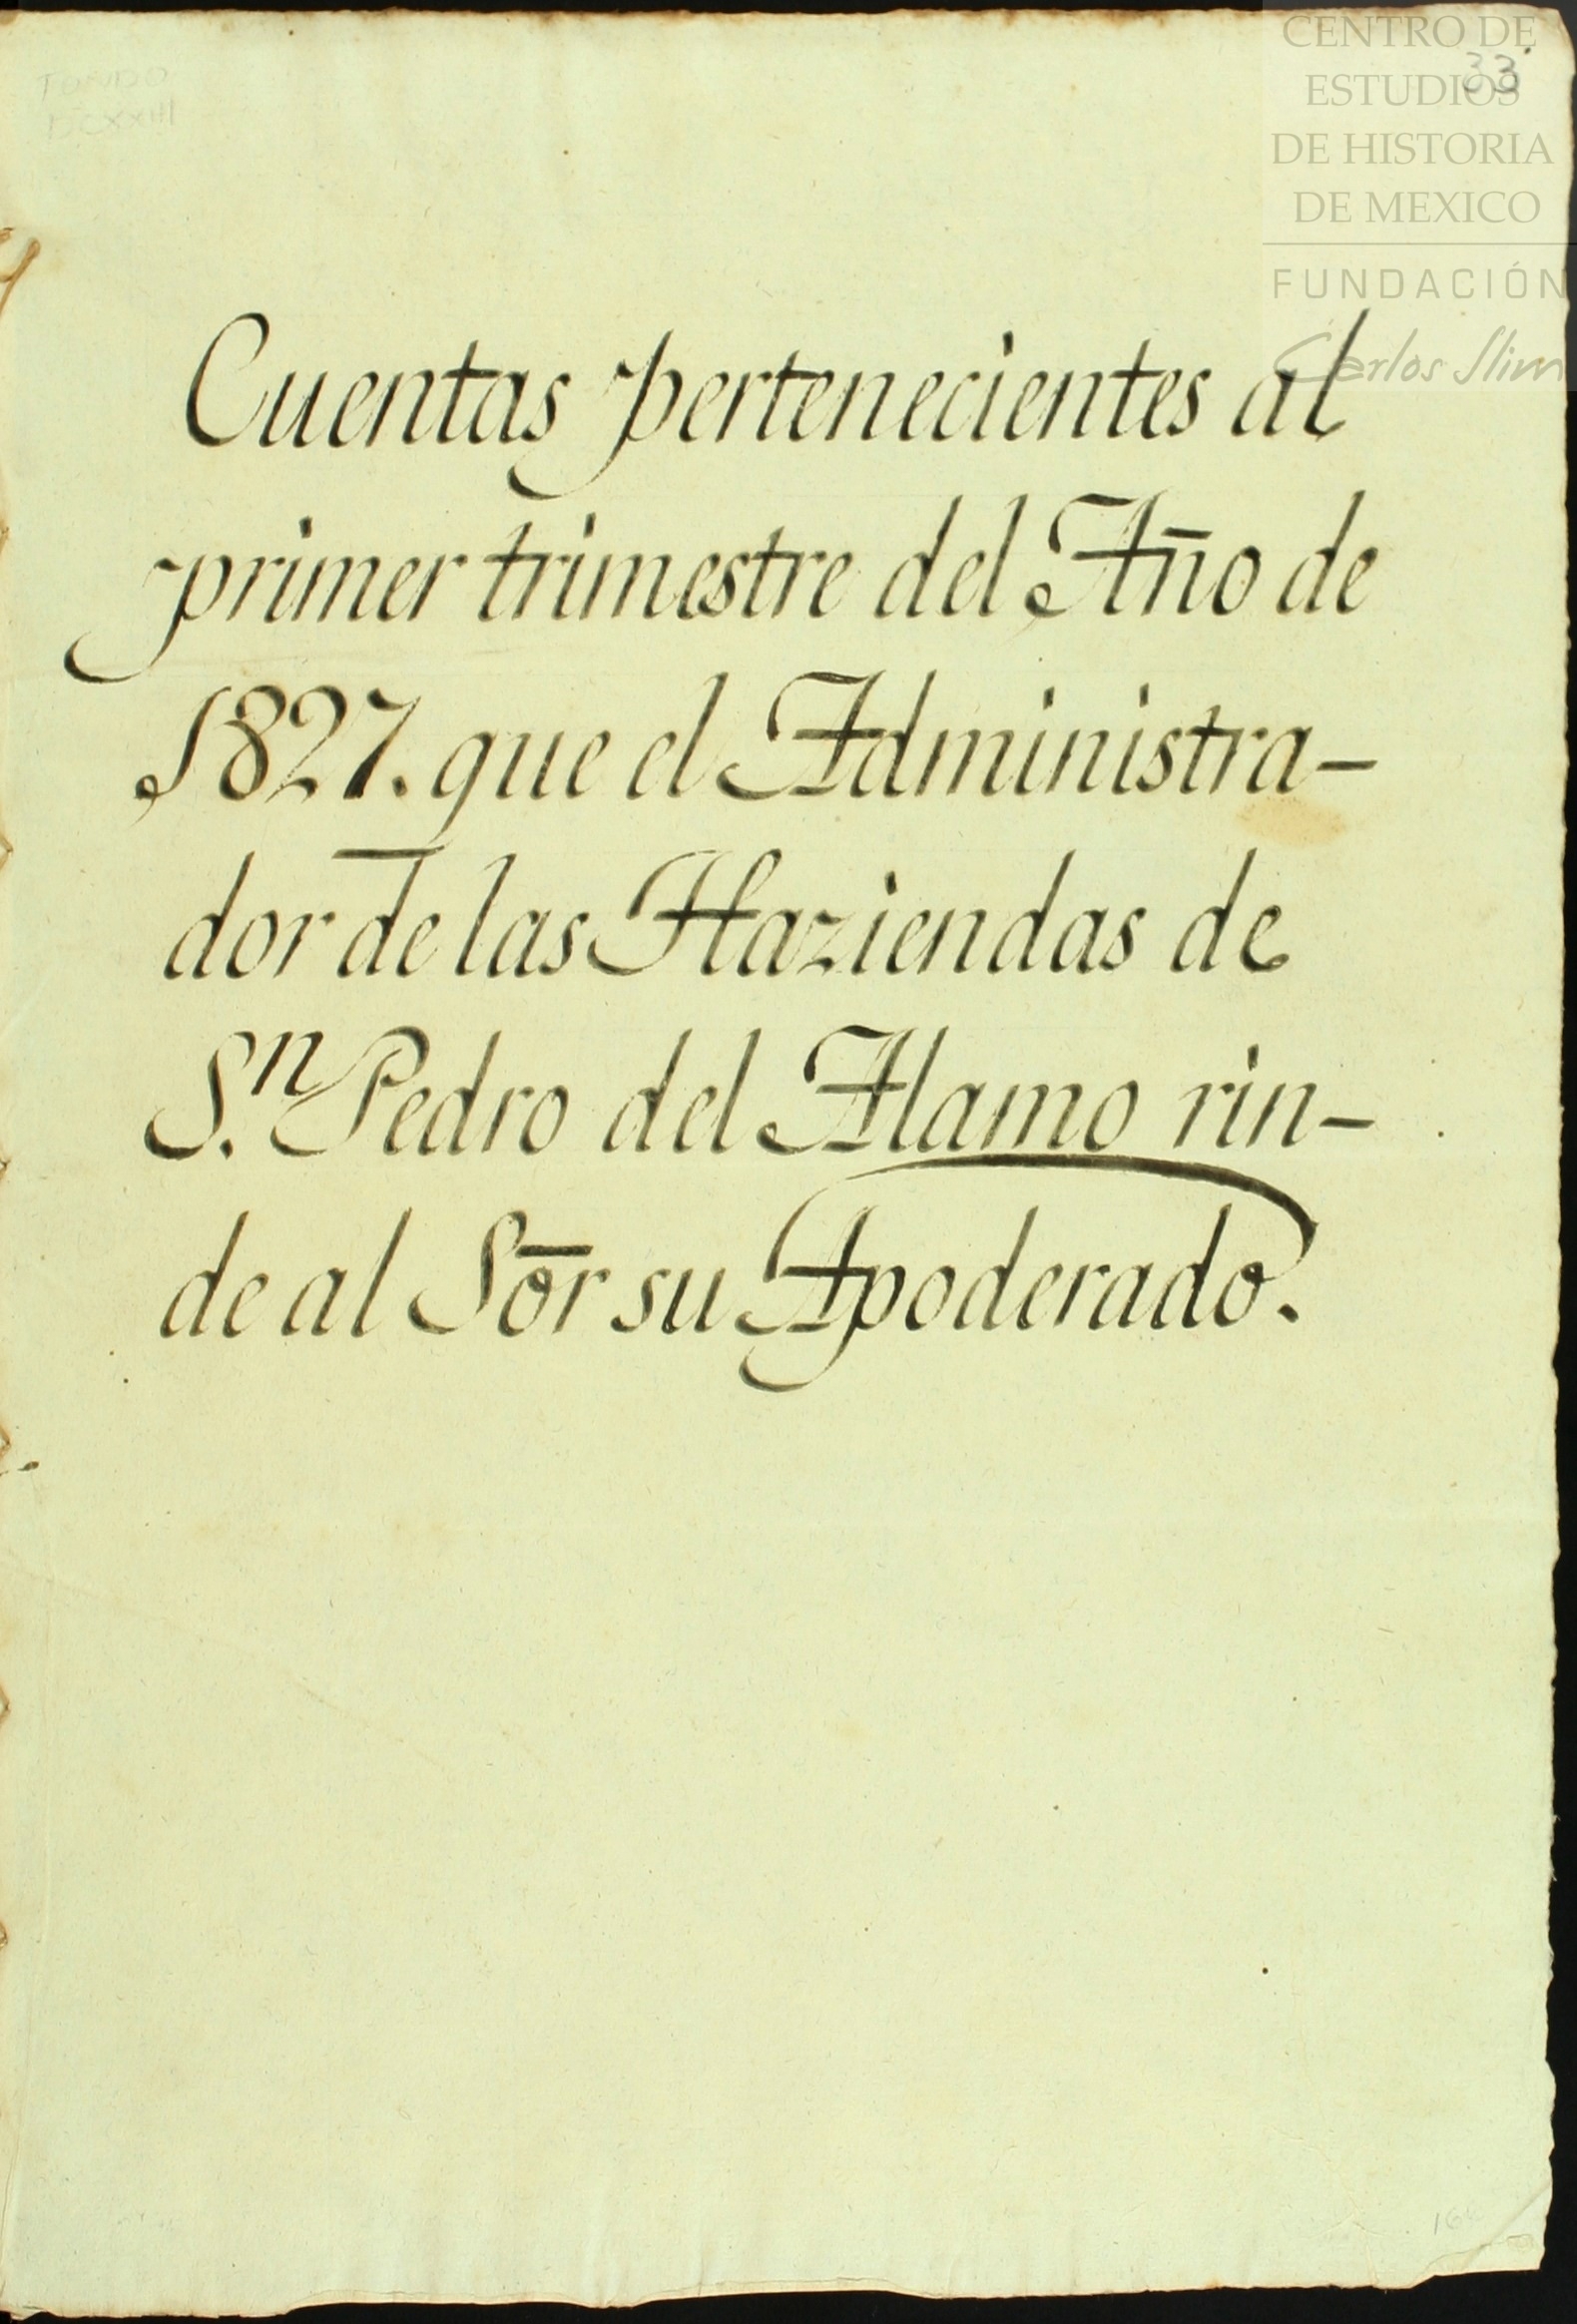 FONDO
DCXXIII
33
CENTRO DE
ESTUDIOS
DE HISTORIA
DE MEXICO
FUNDACIÓN
Carlos Slim
Cuentas pertenecientes al
primer trimestre del Año de
1827. que el Administra-
dor de las Haziendas de
S.n Pedro del Alamo rin-
de al Sōr su Apoderado.